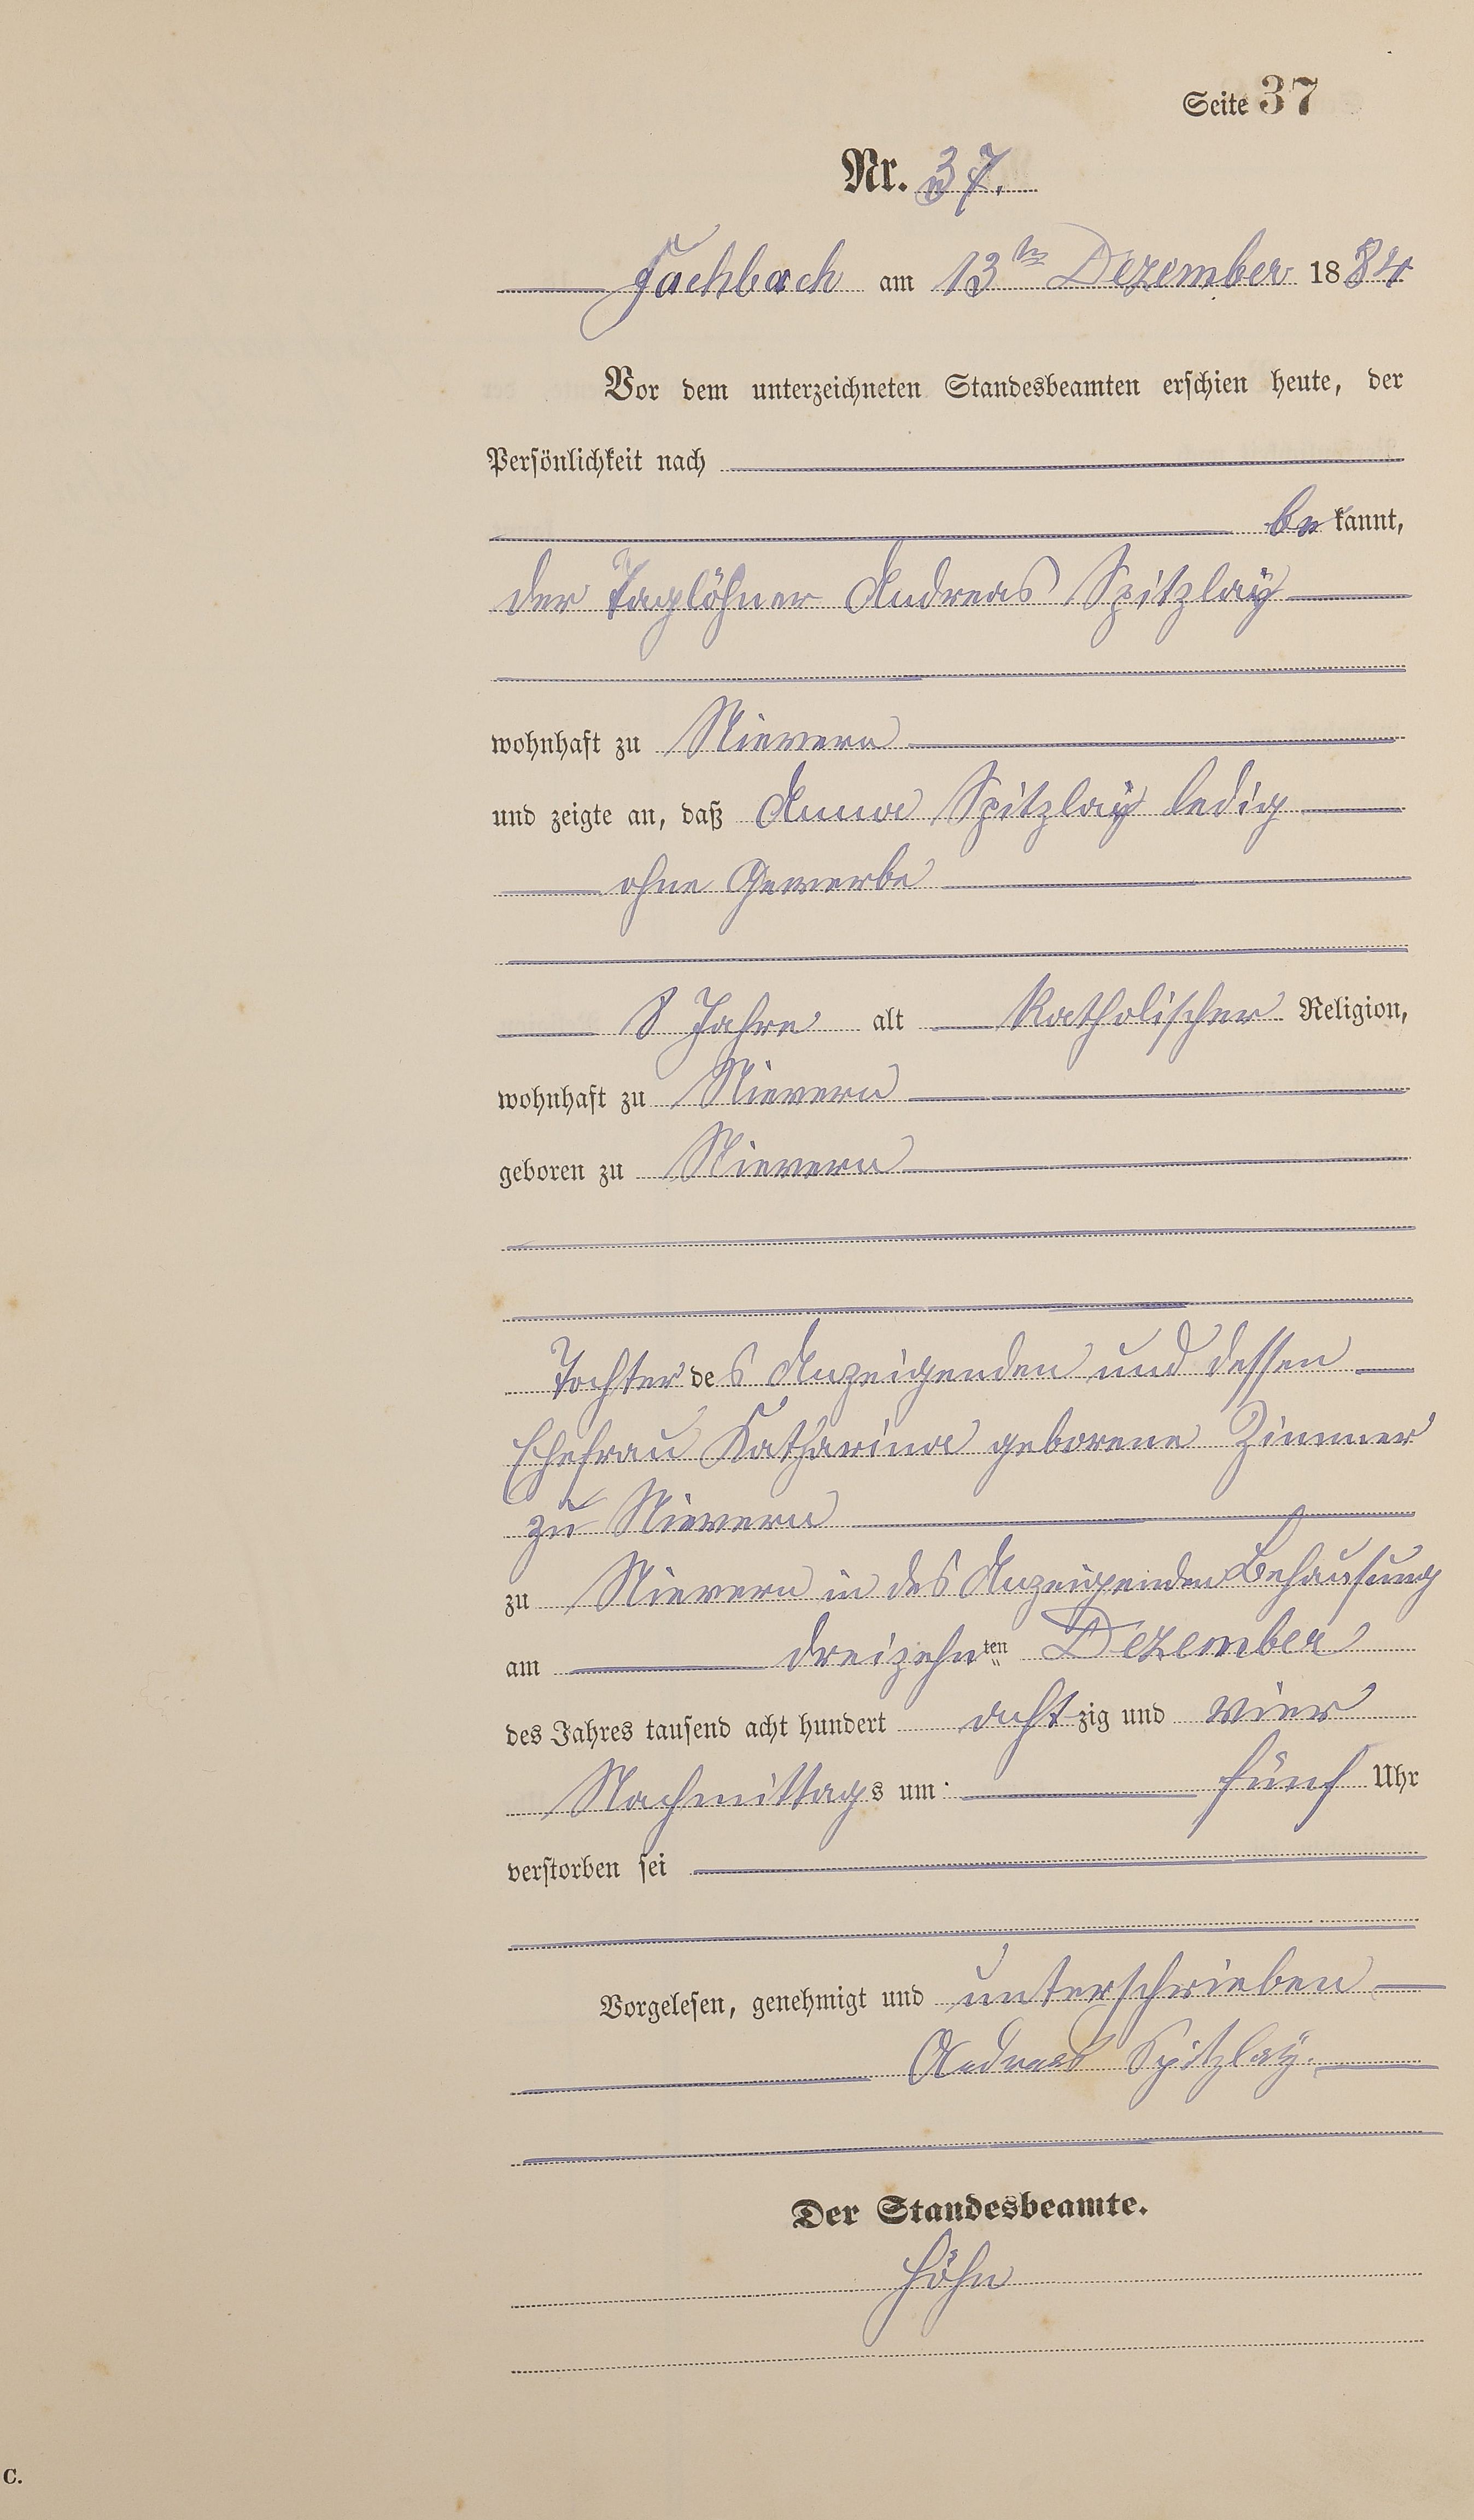 Seite 37
Nr. 37.
Fachbach am 13ten Dezember 1884
Vor dem unterzeichneten Standesbeamten erschien heute, der
Persönlichkeit nach
be kannt,
der Taglöhner Andreas Spitzlaÿ
wohnhaft zu Nievern
und zeigte an, daß Anna Spitzlaÿ ledig
ohne Gewerbe
8 Jahre alt Katholischer Religion,
wohnhaft zu Nievern
geboren zu Nievern
Tochter des Anzeigenden und dessen
Ehefrau Katharina geborene Zimmer
zu Nievern
zu Nievern in des Anzeigenden Behausung
am dreizehnten Dezember
des Jahres tausend acht hundert achtzig und vier
Nachmittags um fünf Uhr
verstorben sei
Vorgelesen, genehmigt und unterschrieben
Andreas Spitzlaÿ.
Der Standesbeamte.
Höhn
C.